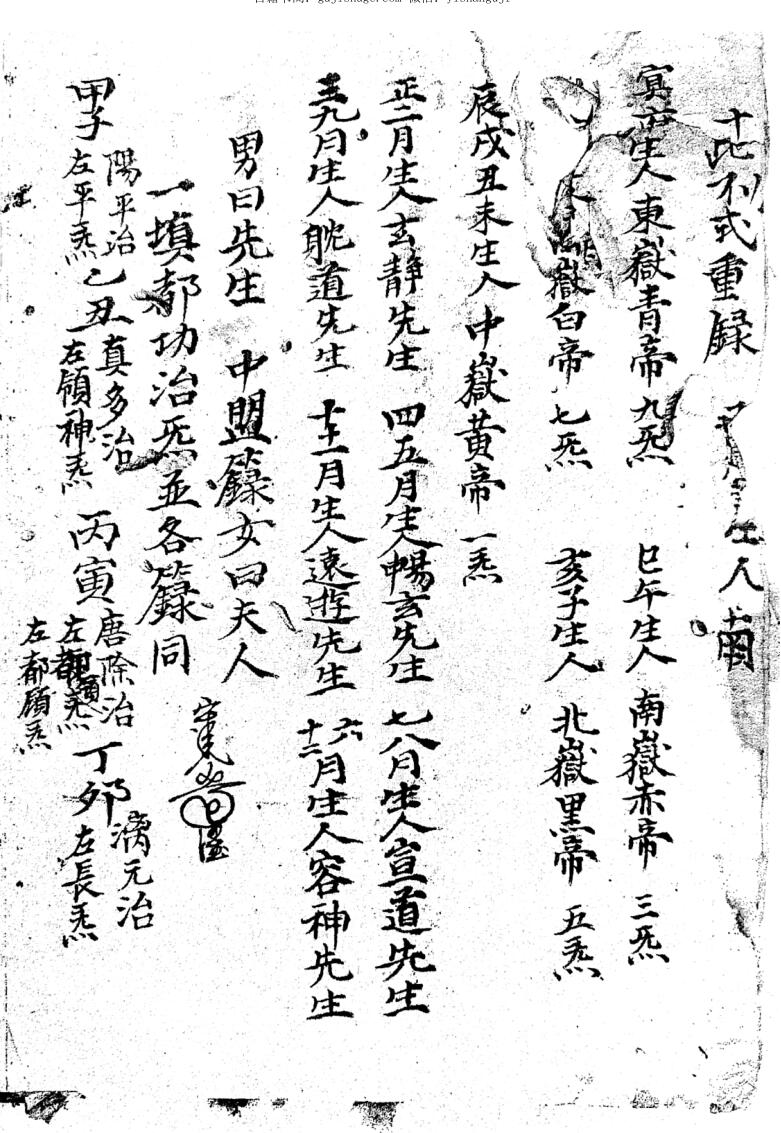 重録 生人南
寅卯生人東嶽青帝九炁 巳午生人南嶽赤帝三炁
嶽白帝七炁 亥子生人北嶽黒帝五炁
辰戌丑未生人中嶽黃帝一炁
正二月生人玄靜先生 四五月生人暢玄先生 七八月生人宣道先生
三九月生人眈道先生 十十一月生人遠遊先生 六十二月生人容神先生
男曰先生 中盟籙女曰夫人
一填都功治炁並各籙同
甲子陽平治左平炁 乙丑真多治左領神炁 丙寅唐除治左都領炁 丁夘漓元治左長炁